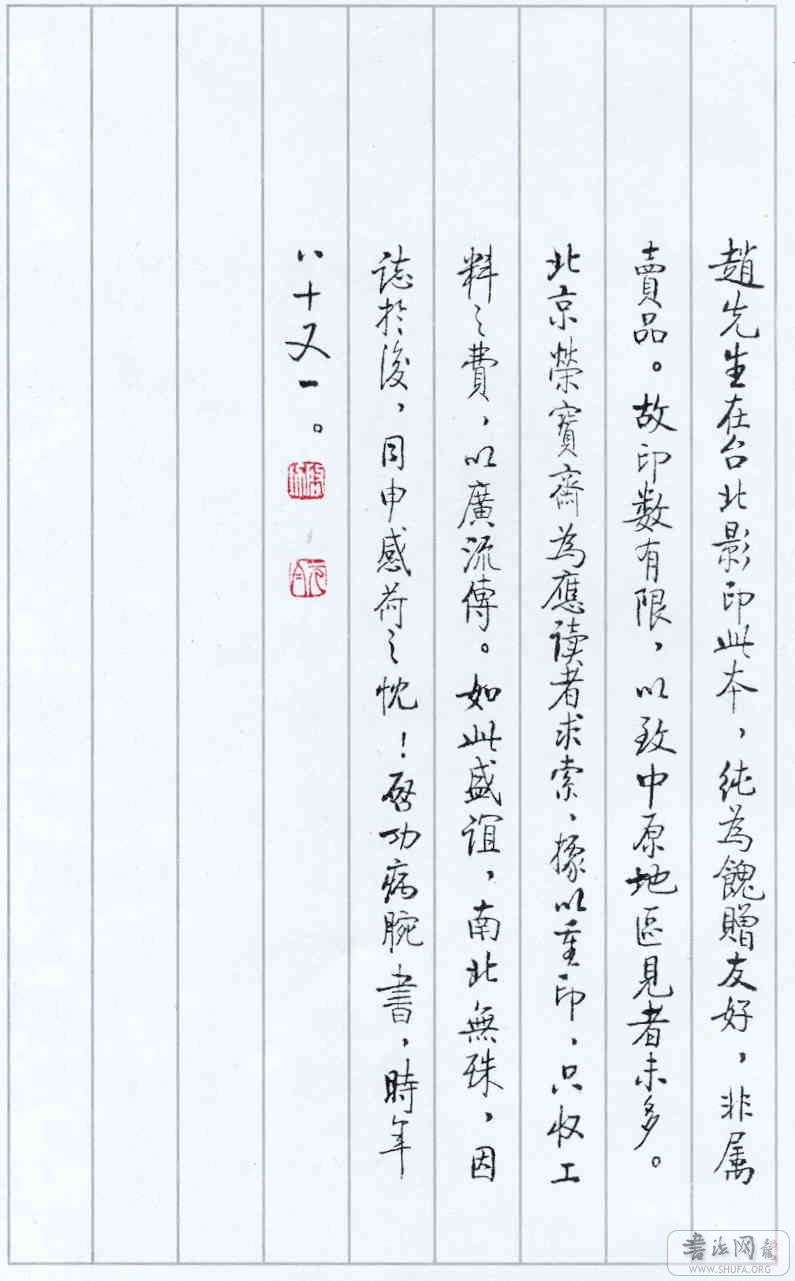 趙先生在台北影印此本，純為餽贈友好，非属
賣品。故印数有限，以致中原地区見者未多。
北京榮寶齋為應读者求索、據以重印，只收工
料之費，以廣流傳。如此盛誼，南北無殊，因
誌於後，用申感荷之忱！启功病腕書，時年
八十又一。
書法网
WWW.SHUFA.ORG